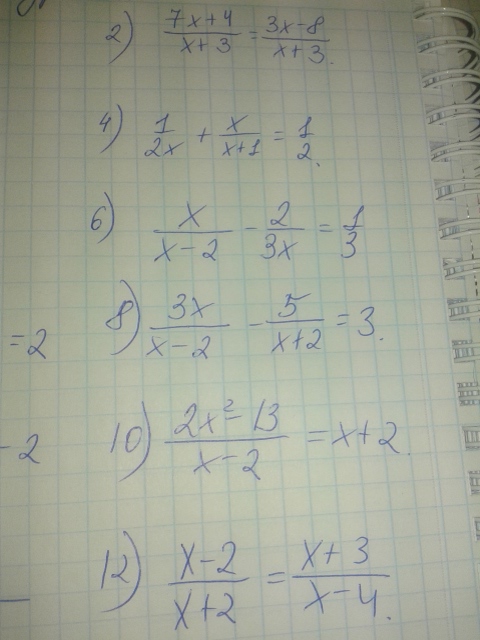 2) (7x+4)/(x+3) = (3x-8)/(x+3).
4) 1/(2x) + x/(x+1) = 1/2.
6) x/(x-2) - 2/(3x) = 1/3
8) 3x/(x-2) - 5/(x+2) = 3.
=2
10) (2x²-13)/(x-2) = x+2.
-2
12) (x-2)/(x+2) = (x+3)/(x-4).